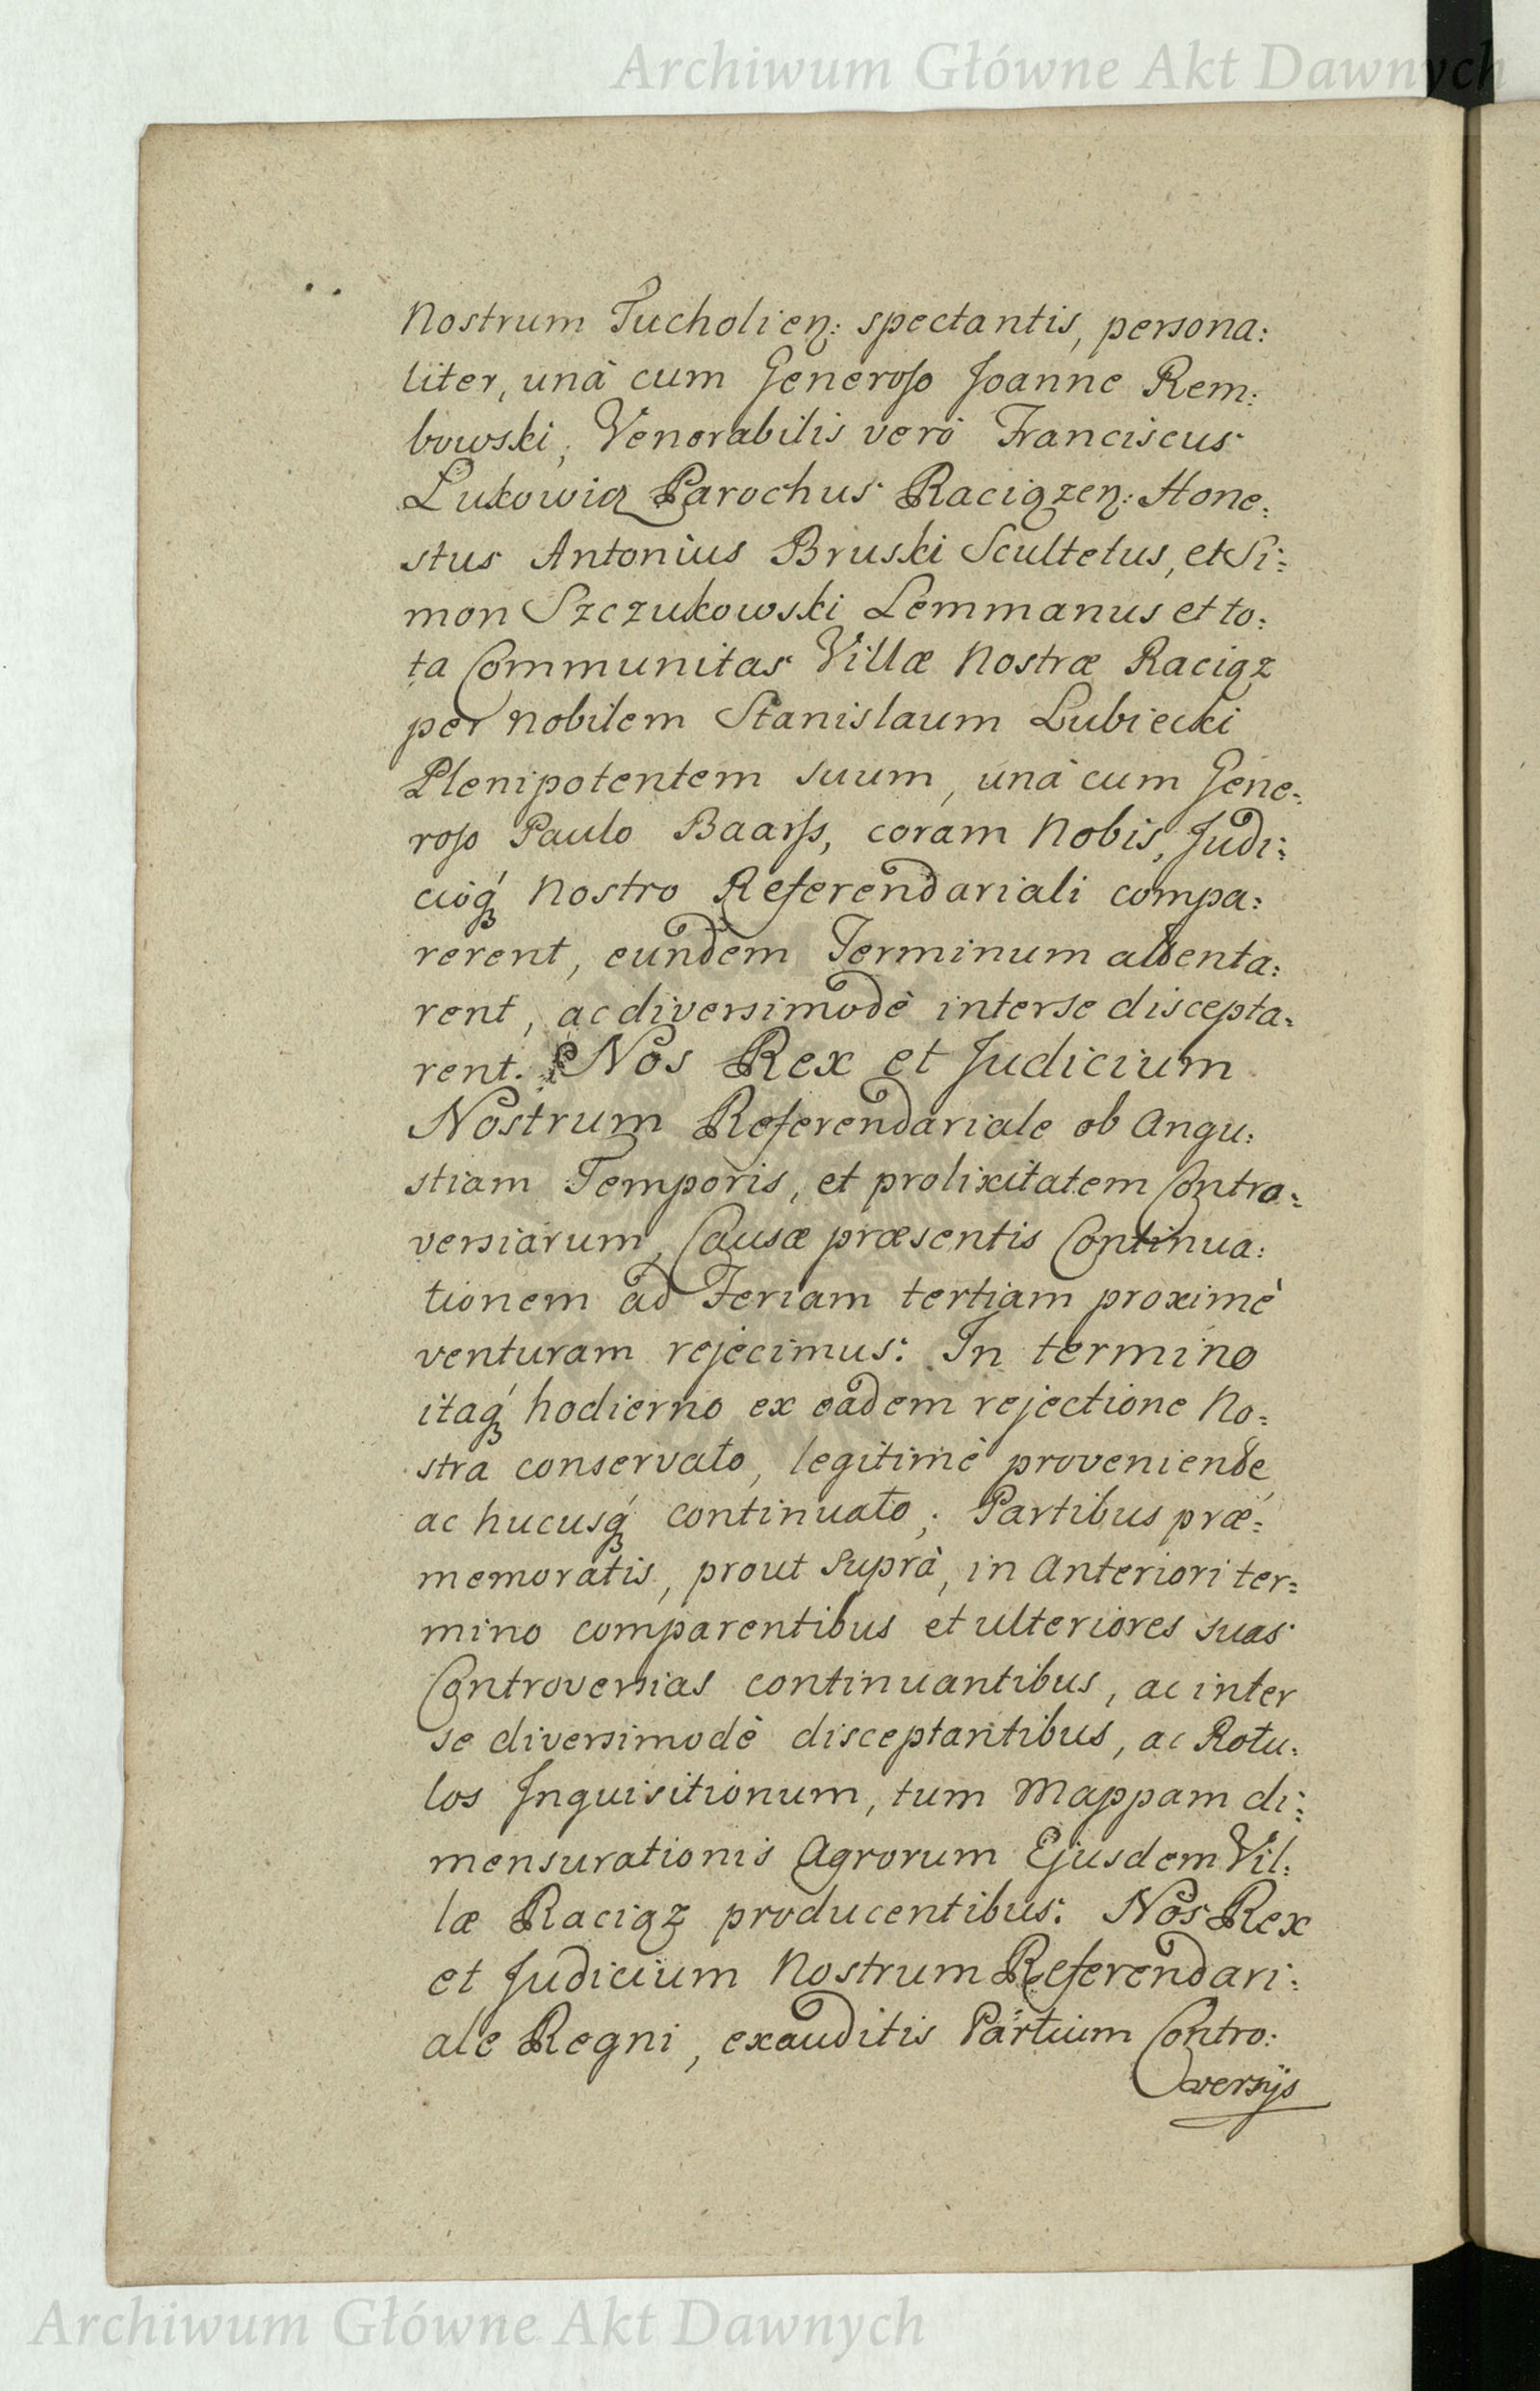 Archiwum Główne Akt Dawnych
Nostrum Tucholien: spectantis, persona:
liter, unà cum Generoso Joanne Rem:
bowski, Venerabilis verò Franciscus
Lukowicz Parochus Raciązen: Hone:
stus Antonius Bruski Scultetus, et Si:
mon Szczukowski Lemmanus et to:
ta Communitas Villæ Nostræ Raciąz
per Nobilem Stanislaum Lubiecki
Plenipotentem suum, unà cum Gene:
roso Paulo Baarss, coram Nobis, Judi:
cioq́ Nostro Referendariali compa:
rerent, eundem Terminum attenta:
rent, ac diversimodè inter se discepta:
rent. Nos Rex et Judicium
Nostrum Referendariale ob Angu:
stiam Temporis, et prolixitatem Contro:
versiarum, Causæ præsentis Continua:
tionem ad Feriam tertiam proximè
venturam rejecimus: In termino
itaq́ hodierno ex eadem rejectione No:
stra conservato, legitimè proveniende
ac hucusq́ continuato; Partibus præ:
memoratis, prout Suprà, in Anteriori ter:
mino comparentibus et ulteriores suas
Controversias continuantibus, ac inter
se diversimodè disceptantibus, ac Rotu:
los Inquisitionum, tum Mappam di:
mensurationis Agrorum Ejusdem Vil:
læ Raciąz producentibus: Nos Rex
et Judicium Nostrum Referendari:
ale Regni, exauditis Partium Contro:
versijs
Archiwum Główne Akt Dawnych